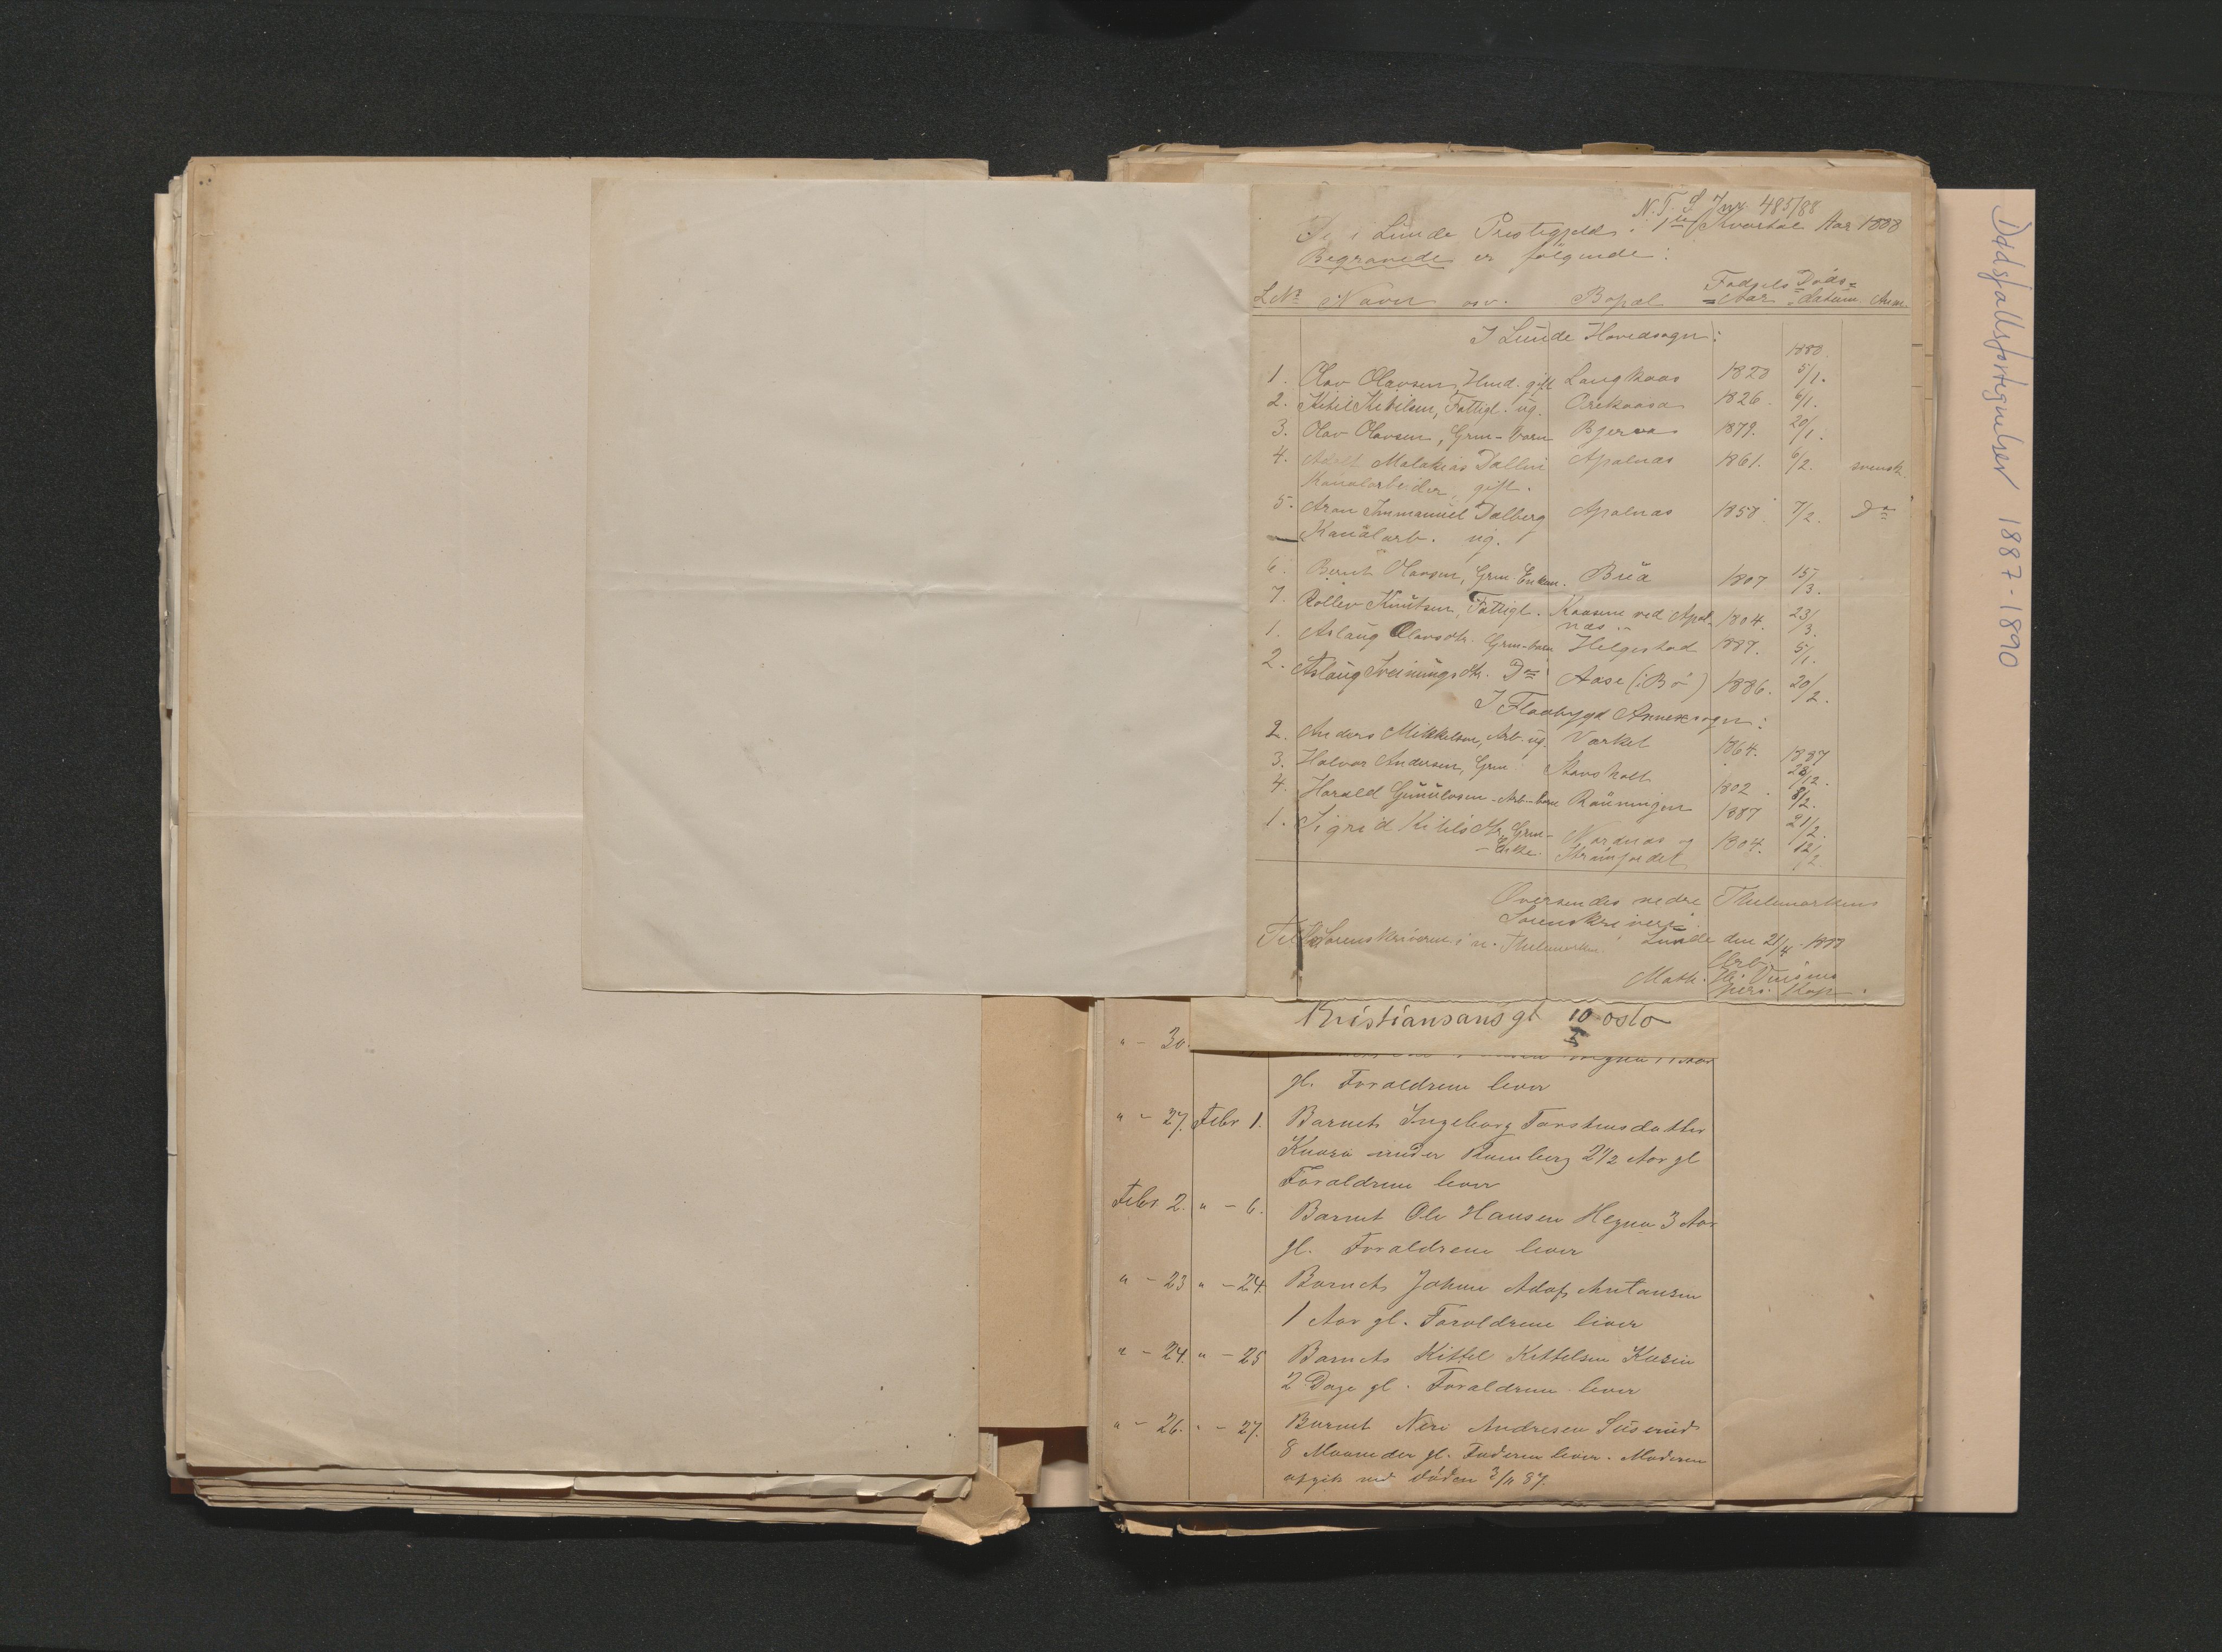 N. T. S Jnr 485/88
De i Lunde Prestegjeld i 1ste Kvartal Aar 1888
Begravede er følgende:
LNo Navn osv. Bopæl Fødsels=Aar Døds=datum Anm.
I Lunde Hovedsogn:
1888.
1. Olav Olavsen, Hmd. gift Langkaas 1828 5/1.
2. Ketil Ketilsen, Fattigl. ug. Orekaasa 1826. 6/1.
3. Olav Olavsen, Grm-barn Bjerva 1879. 20/1.
4. Adolf Malakias Dallin Apalnæs 1861. 6/2. svensk.
Kanalarbeider, gift.
5. Aron Immanuel Dalberg Apalnæs 1858. 7/2. Do
Kanalarb. ug.
6. Bernt Olavsen, Grm. Enkem. Brua 1807 15/3.
7. Rollev Knutsen, Fattigl. Kaasene ved Apal- 1804. 23/3.
næs
1. Aslaug Olavsdtr. Grm-barn Helgestad 1887. 5/1.
2. Aslaug Sveinungsdtr. Do Aase (i Bø) 1886. 20/2.
I Flaabygd Annexsogn:
2. Anders Mikkelsen, Arb. ug. Varket 1864. 1887 28/12.
3. Halvor Andersen, Grm. Stavsholt 1802. 8/2.
4. Harald Gunulvsen Arb-barn Rauningen 1887 21/2.
1. Sigrid Kitilsdtr, Grm- Nordnæs 1804. 12/2
-Enke.
Oversendes nedre Thelemarkens
Sorenskriveri.
Til Sorenskriveren i n. Thelemarken. Lunde den 21/4 1888
Ærb.
Math.
pers. Kap.
Kristiansansgt 10 oslo
5
" - 30.
gl. Forældrene lever
" - 27. Febr 1. Barnet Ingeborg Torstensdatter
Kaasa under Rumberg 2 1/2 Aar gl
Forældrene lever
Febr 2. " - 6. Barnet Ole Hansen Hegna 3 Aar
gl. Forældrene lever
" - 23 " - 24. Barnet Johan Adof Antansen
1 Aar gl. Forældrene lever
" - 24. " - 25 Barnet Kittel Kittelsen Kasin
2 Dage gl. Forældrene lever
" - 26. " - 27. Barnet Neri Andresen Suserud
8 Maaneder gl. Faderen lever. Moderen
afgik ved døden 3/11 87.
Dødsfallsfortegnelser 1887-1890